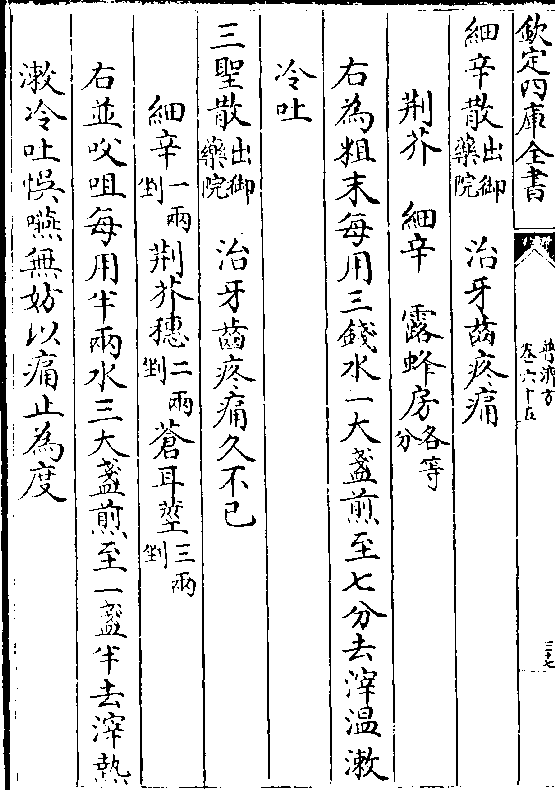 欽定四庫全書
普濟方
卷六十五
三十七
細辛散出御藥院 治牙齒疼痛
荆芥 細辛 露蜂房各等分
右為粗末每用三錢水一大盞煎至七分去滓温漱
冷吐
三聖散出御藥院 治牙齒疼痛久不已
細辛一兩剉 荆芥穗二兩剉 蒼耳莖三兩剉
右並㕮咀每用半兩水三大盞煎至一盞半去滓熱
漱冷吐悞嚥無妨以痛止為度